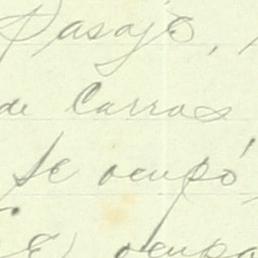 Pasajo,
de Carros
Se ocupó
Se ocupa